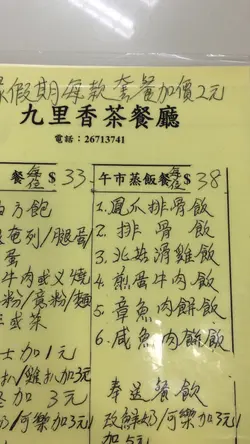 假期每款套餐加價2元
九里香茶餐廳
電話：26713741
餐每位$33
方飽
列/腿蛋
蛋
牛肉或叉燒
粉/意粉/麵
或菜
士加1元
扒/雞扒加3元
加3元
/可樂加3元
午市蒸飯餐每位$38
1.鳳爪排骨飯
2.排骨飯
3.北菇滑雞飯
4.煎蛋牛肉飯
5.章魚肉餅飯
6.咸魚肉餅飯
奉送餐飲
改鮮奶/可樂加3元